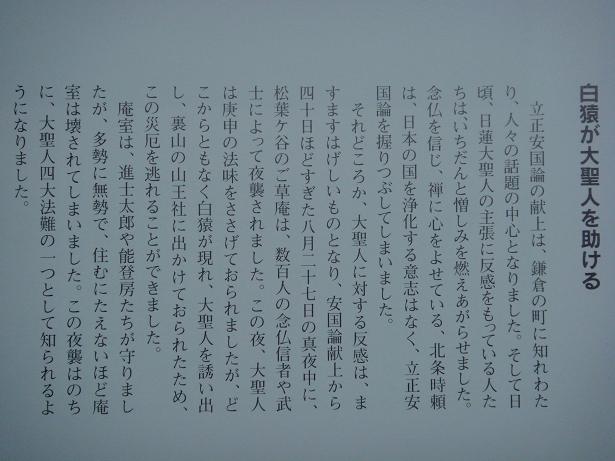 白猿が大聖人を助ける
立正安国論の献上は、鎌倉の町に知れわた
り、人々の話題の中心となりました。そして日
頃、日蓮大聖人の主張に反感をもっている人た
ちは、いちだんと憎しみを燃えあがらせました。
念仏を信じ、禅に心をよせている、北条時頼
は、日本の国を浄化する意志はなく、立正安
国論を握りつぶしてしまいました。
それどころか、大聖人に対する反感は、ま
すますはげしいものとなり、安国論献上から
四十日ほどすぎた八月二十七日の真夜中に、
松葉ケ谷のご草庵は、数百人の念仏信者や武
士によって夜襲されました。この夜、大聖人
は庚申の法味をささげておられましたが、ど
こからともなく白猿が現れ、大聖人を誘い出
し、裏山の山王社に出かけておられたため、
この災厄を逃れることができました。
庵室は、進士太郎や能登房たちが守りまし
たが、多勢に無勢で、住むにたえないほど庵
室は壊されてしまいました。この夜襲はのち
に、大聖人四大法難の一つとして知られるよ
うになりました。